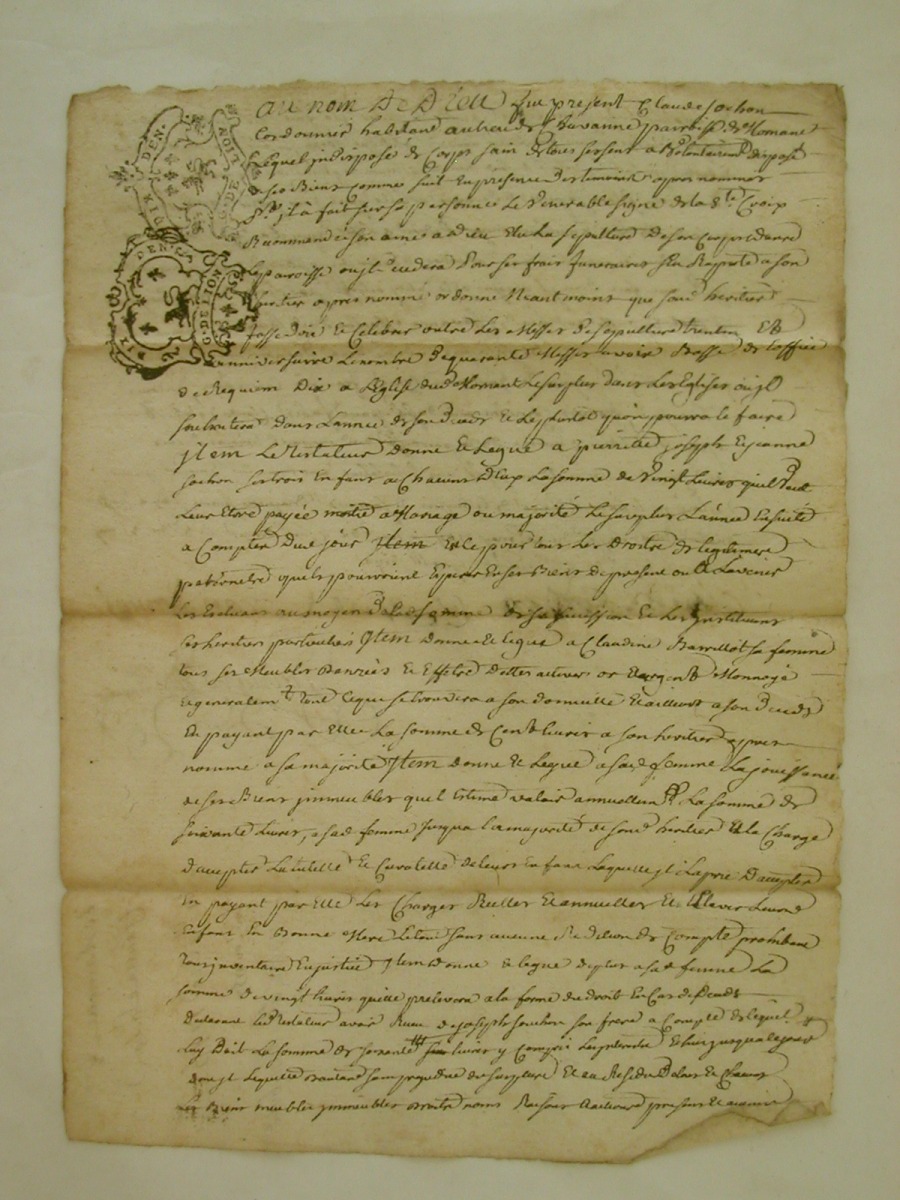 Au nom De Dieu fut present Claude sochon
Cordonnier habitant au lieu de Chavanne parroisse de Mornant
Lequel indispose de Corps sain de tous ses sens a Volontairemt dispose
de ses Biens comme suit En presence Des temoins apres nommes
jl a fait sur sa personne Le Venerable signe de la Ste Croix
Recommande son ame a dieu Elu La sepulture De son Corps dans
La parroisse ou jl decedera Pour ses frais funeraires s'En Rapporte a son
heritier apres nommé ordonne Neantmoins que sond heritier
fasse dire Et Celebrer outre Les Messes De sepulture trentin Et
anniversaire Le nombre De quarante Messes a voix Basse de L'office
de Requiem Dix a L'Eglise dud Mornant Le surplus Dans Les Eglises ou jl
souhaitera Dans L'année de son Deces Et Le plutôt qu'on pourra le faire
jtem Le Testateur Donne Et Legue a pierrette joseph Et jeanne
sochon ses trois Enfans a Chacun D'Eux La somme de Vingt Livres qu'il Veut
Leur Etre payée moitié a Mariage ou majorité Le surplus L'année Ensuite
a Compter Dud jour jtem Et Ce pour tous Les Droits de legitime
paternelle qu'ils pourroient Esperer En ses Biens De present ou a L'avenir
Les Excluant au moyen De lad somme De sa succession Et Les jnstituant
ses heritiers particuliers jtem Donne Et legue a Claudine Barrillot sa femme
tous ses Meubles Danrées Et Effets Dettes actives or Et argent Monnoyé
Et generalemt Tout Ce qui se trouvera a son domicille Et ailleurs a son Deces
En payant par Elle La somme de Cent Livres a son heritier apres
nommé a sa majorité jtem Donne Et Legue a sad femme La jouissance
de ses Biens jmmeubles qu'il Estime valoir annuellemt La somme de
soixante Livres, a sad femme jusqu'a La majorité de sond heritier Et la Charge
D'accepter La tutelle Et Curatelle De leurs Enfans Laquelle jl La prie D'accepter
En payant par Elle Les Charges Reelles Et annuelles Et Elever Leurs
Enfans En Bonne Mere Le tout sans aucune Reddition de Compte prohibant
Tous jnventaires En justice jtem Donne Et legue De plus a sad femme La
somme De vingt livres qu'elle prelevera a la forme du droit En Cas de Deces
Declarant Le Testateur avoir Recu De joseph sochon son frere a Compte de ce qu'il
Luy Doit La somme de soixante Livres y Compris
Les Biens meubles jmmeubles Droits noms Raisons actions presens Et avenir